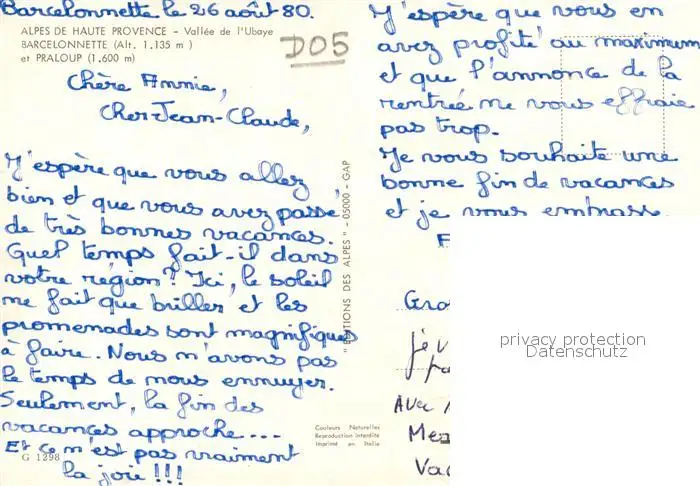 Barcelonnette le 26 août 80.
ALPES DE HAUTE PROVENCE - Vallée de l'Ubaye
BARCELONNETTE (Alt. 1.135 m)
et PRALOUP (1.600 m)
D05
Chère Annie,
Cher Jean-Claude,
J'espère que vous allez
bien et que vous avez passé
de très bonnes vacances.
Quel temps fait-il dans
votre région? Ici, le soleil
ne fait que briller et les
promenades sont magnifiques
à faire. Nous n'avons pas
le temps de nous ennuyer.
Seulement, la fin des
vacances approche...
Et ce n'est pas vraiment
G 1298
la joie!!!
"EDITIONS DES ALPES" - 05000 - GAP
Couleurs Naturelles
Reproduction interdite
Imprimé en Italie
J'espère que vous en
avez profité au maximum
et que l'annonce de la
rentrée ne vous effraie
pas trop.
Je vous souhaite une
bonne fin de vacances
et je vous embrasse
Gro
je v
Avec
Me
Vac
privacy protection
Datenschutz